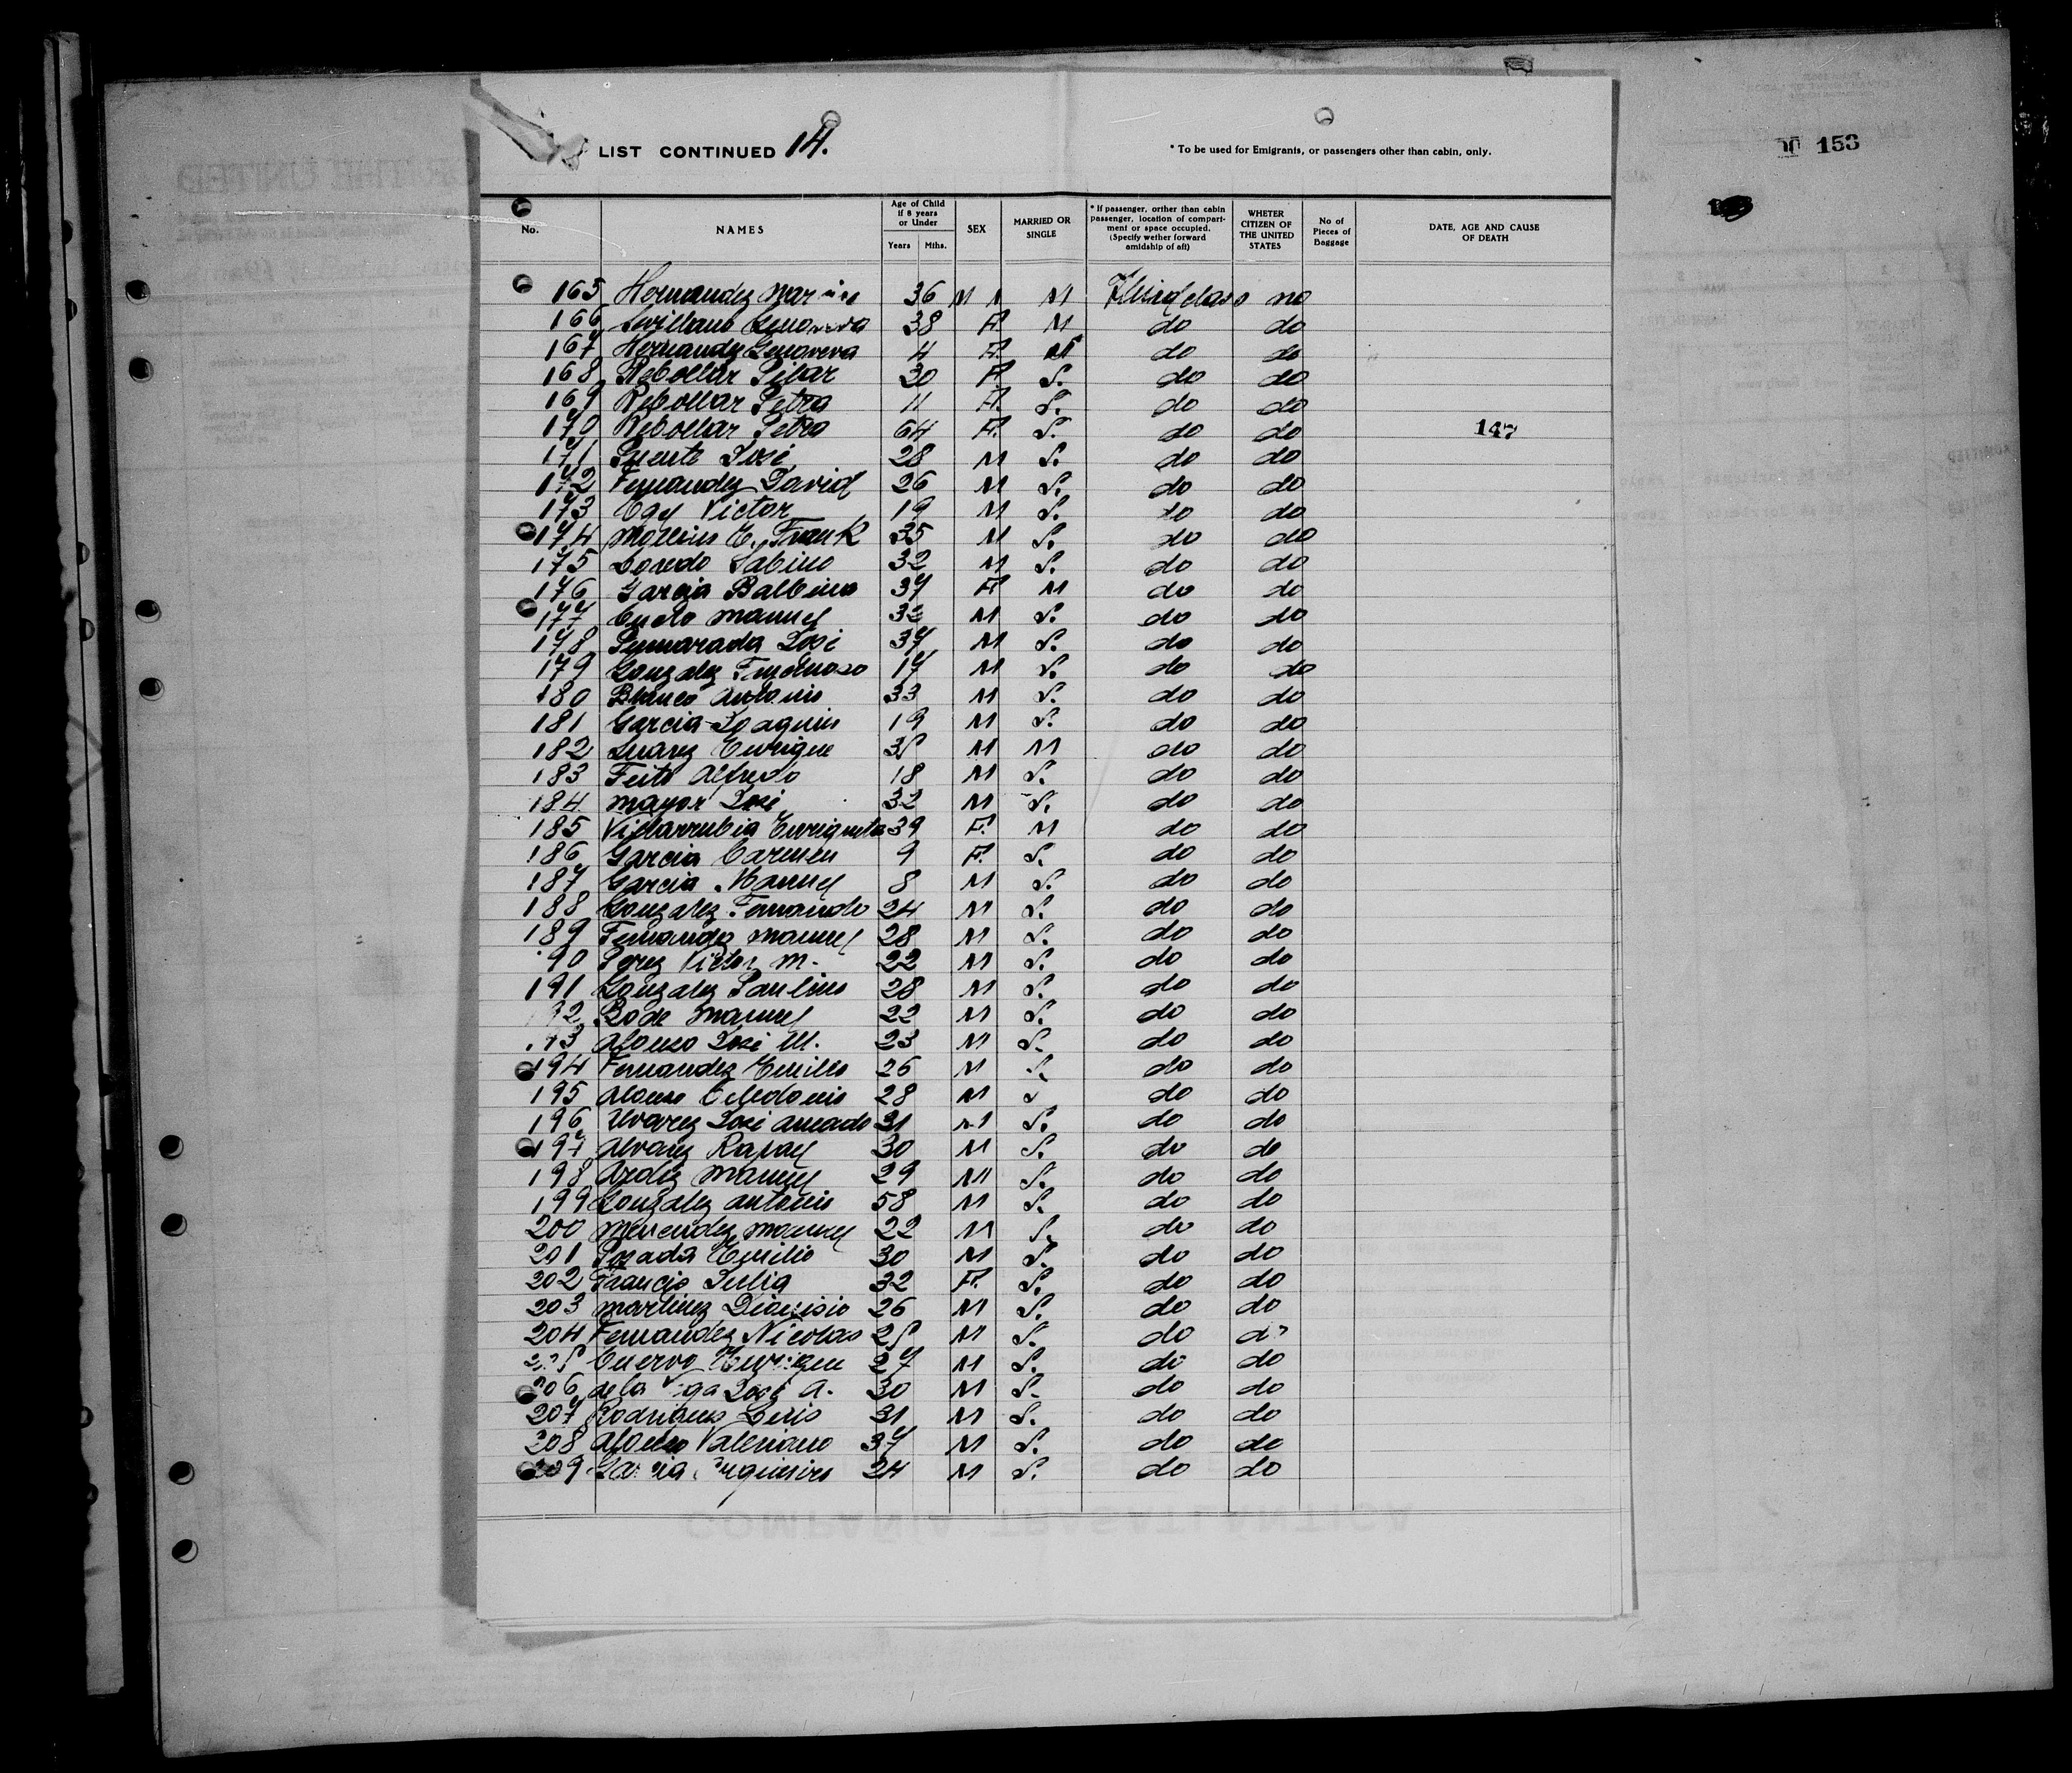 LIST CONTINUED 14.
* To be used for Emigrants, or passengers other than cabin, only.
00 153
No.
NAMES
Age of Child if 8 years or Under
Years Mths.
SEX
MARRIED OR SINGLE
* If passenger, orther than cabin passenger, location of compartment or space occupied. (Specify wether forward amidship of aft)
WHETER CITIZEN OF THE UNITED STATES
No of Pieces of Baggage
DATE, AGE AND CAUSE OF DEATH
165 Hernandez 36 M M Third class no
166 38 F. M do do
167 Hernandez Genoveva 4 F. do do
168 Rebollar Pilar 30 F. S. do do
169 Rebollar Petra 11 F. S. do do
170 Rebollar Petra 64 F. S. do do 147
171 Puente José 28 M S. do do
172 Fernandez David 26 M S. do do
173 Victor 19 M S. do do
174 E. Frank 35 M S. do do
175 Loredo Sabino 32 M S. do do
176 Garcia Balbina 37 F. M do do
177 Cueto Manuel 32 M S. do do
178 Pumarada José 37 M S. do do
179 Gonzalez Fructuoso 17 M S. do do
180 Blanco Antonio 33 M S. do do
181 Garcia Joaquin 19 M S. do do
182 Suarez Enrique 35 M M do do
183 Feito Alfredo 18 M S. do do
184 Mayor José 32 M S. do do
185 Villarrubia Enriqueta 39 F. M do do
186 Garcia Carmen 9 F. S. do do
187 Garcia Manuel 8 M S. do do
188 Gonzalez Fernando 24 M S. do do
189 Fernandez Manuel 28 M S. do do
90 Perez Victor M. 22 M S. do do
191 Gonzalez Paulino 28 M S. do do
92 Manuel 22 M S. do do
193 Alonso José M. 23 M S. do do
194 Fernandez Emilio 26 M S. do do
195 Alonso Celedonio 28 M S do do
196 Alvarez José Amado 31 M S. do do
197 Alvarez Rafael 30 M S. do do
198 Manuel 29 M S. do do
199 Gonzalez Antonio 58 M S. do do
200 Menendez Manuel 22 M S. do do
201 Posada Emilio 30 M S. do do
202 Julia 32 F. S. do do
203 Martinez Dionisio 26 M S. do do
204 Fernandez Nicolas 25 M S. do do
205 Cuervo Enrique 27 M S. do do
206 de la Vega José A. 30 M S. do do
207 Rodriguez Luis 31 M S. do do
208 Alonso Valeriano 37 M S. do do
209 Garcia 24 M S. do do
COMPAÑIA TRASATLANTICA